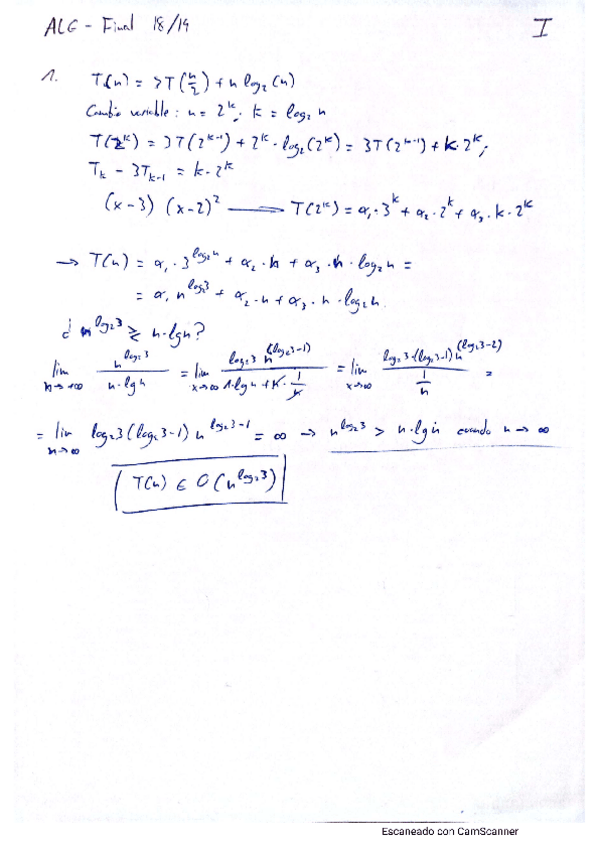 ALG - Final 18/19 I
1. T(n) = 3T(n/2) + n log₂(n)
Cambio variable: n = 2^k; k = log₂ n
T(2^k) = 3T(2^(k-1)) + 2^k · log₂(2^k) = 3T(2^(k-1)) + k·2^k;
T_k - 3T_(k-1) = k·2^k
(x-3) (x-2)² —— T(2^k) = α₁·3^k + α₂·2^k + α₃·k·2^k
→ T(n) = α₁·3^(log₂n) + α₂·n + α₃·n·log₂n =
= α₁ n^(log₂3) + α₂·n + α₃·n·log₂n.
¿ n^(log₂3) ≥ n·lgn?
lim n→+∞ n^(log₂3) / n·lgn = lim x→∞ log₂3 n^(log₂3-1) / 1·lgn + n·1/n = lim x→∞ log₂3·(log₂3-1) n^(log₂3-2) / 1/n =
= lim n→∞ log₂3 (log₂3-1) n^(log₂3-1) = ∞ → n^(log₂3) > n·lgn cuando n→∞
T(n) ∈ O(n^(log₂3))
Escaneado con CamScanner